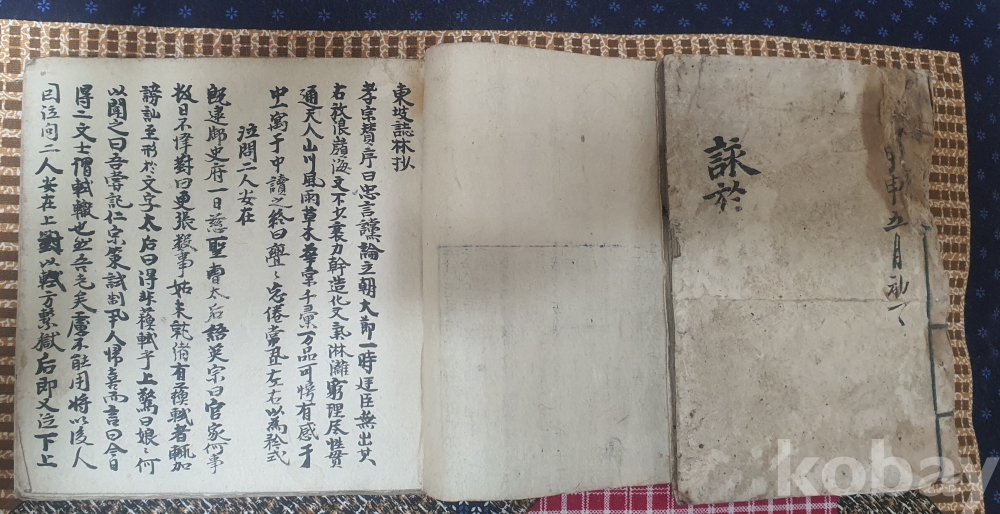 壬申五月
詠於
東坡誌林抄
孝宗賛序曰忠言讜論立朝大節一時廷臣無出其
右放浪嶺海文不少衰力斡造化文氣淋灕窮理尽性貫
通天人山川風雨草木華實千彙万品可愕有感于
中一寓于中讀之終日亹〻忘倦常置左右以為矜式
泣問二人安在
既逮御史府一日慈聖曹太后語英宗曰官家何事
數日不懌對曰更張數事姑未就緒有蘓軾者輒加
謗訕至形於文字太后曰得非蘓軾乎上驚曰娘〻何
以聞之曰吾嘗記仁宗策試制科人帰喜而言曰今日
得二文士謂軾轍也然吾老矣慮不能用將以後人
曰泣问二人安在上對以軾方繫獄后即又泣下上
kobay